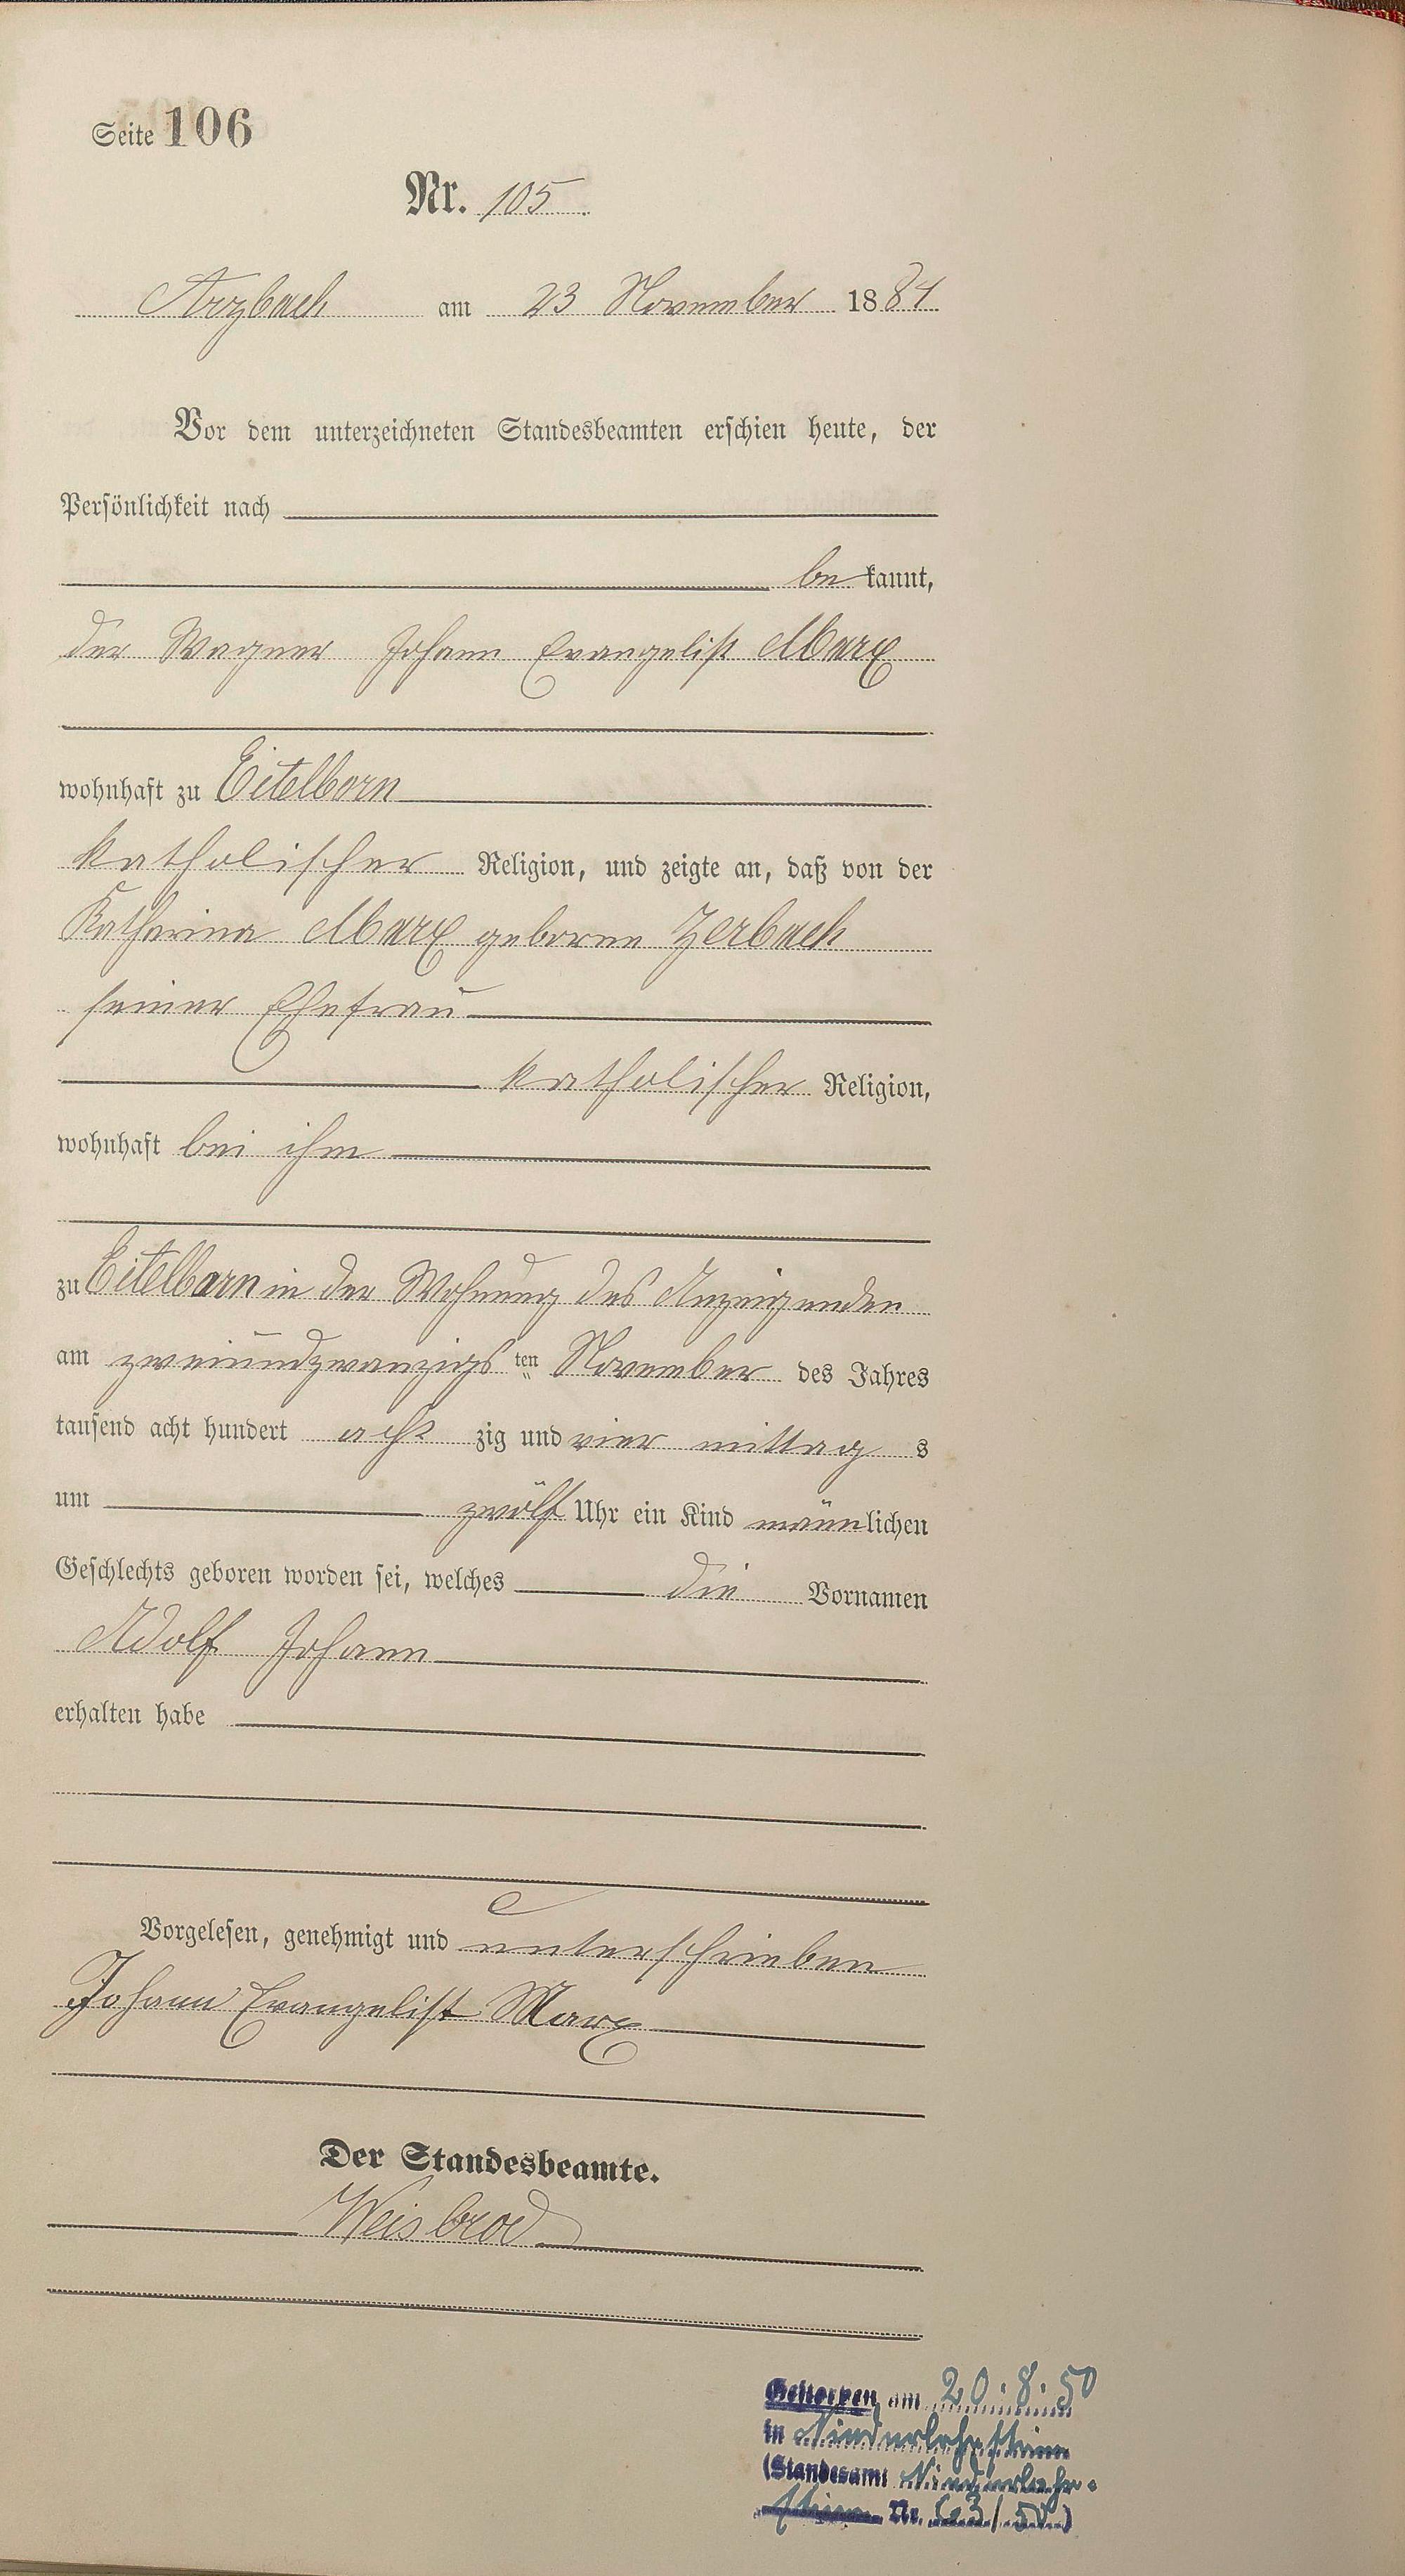 Seite 106
Nr. 105.
Arzbach am 23 November 1884
Vor dem unterzeichneten Standesbeamten erschien heute, der
Persönlichkeit nach
be kannt,
der Wagner Johann Evangelist Marx
wohnhaft zu Eitelborn
katholischer Religion, und zeigte an, daß von der
Katharina Marx geborne Zerbach
seiner Ehefrau
katholischer Religion,
wohnhaft bei ihm
zu Eitelborn in der Wohnung des Anzeigenden
am zweiundzwanzigs ten November des Jahres
tausend acht hundert acht zig und vier mittag s
um zwölf Uhr ein Kind männlichen
Geschlechts geboren worden sei, welches die Vornamen
Adolf Johann
erhalten habe
Vorgelesen, genehmigt und unterschrieben
Johann Evangelist Marx
Der Standesbeamte.
Weisbrod
Gestorben am 20.8.50
in Niederlahnstein
(Standesamt Niederlahn-
stein Nr. /50)